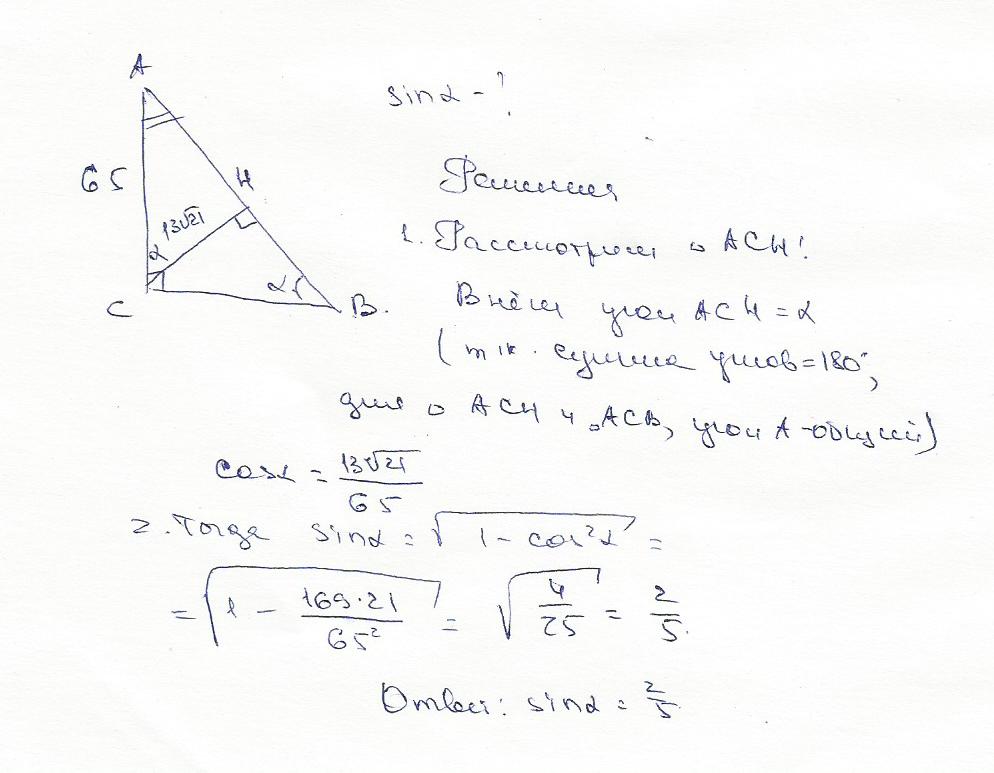 A
sinα - ?
65
H
13√21
Решение
α
1. Рассмотрим △ ACH:
C
α
B.
В нём угол ACH = α
(т.к. сумма углов = 180°,
для △ ACH и △ ACB, угол A - общий)
cosα = 13√21 / 65
2. Тогда sinα = √(1 - cos²α) =
= √(1 - 169·21 / 65²) = √(4/25) = 2/5.
Ответ: sinα = 2/5